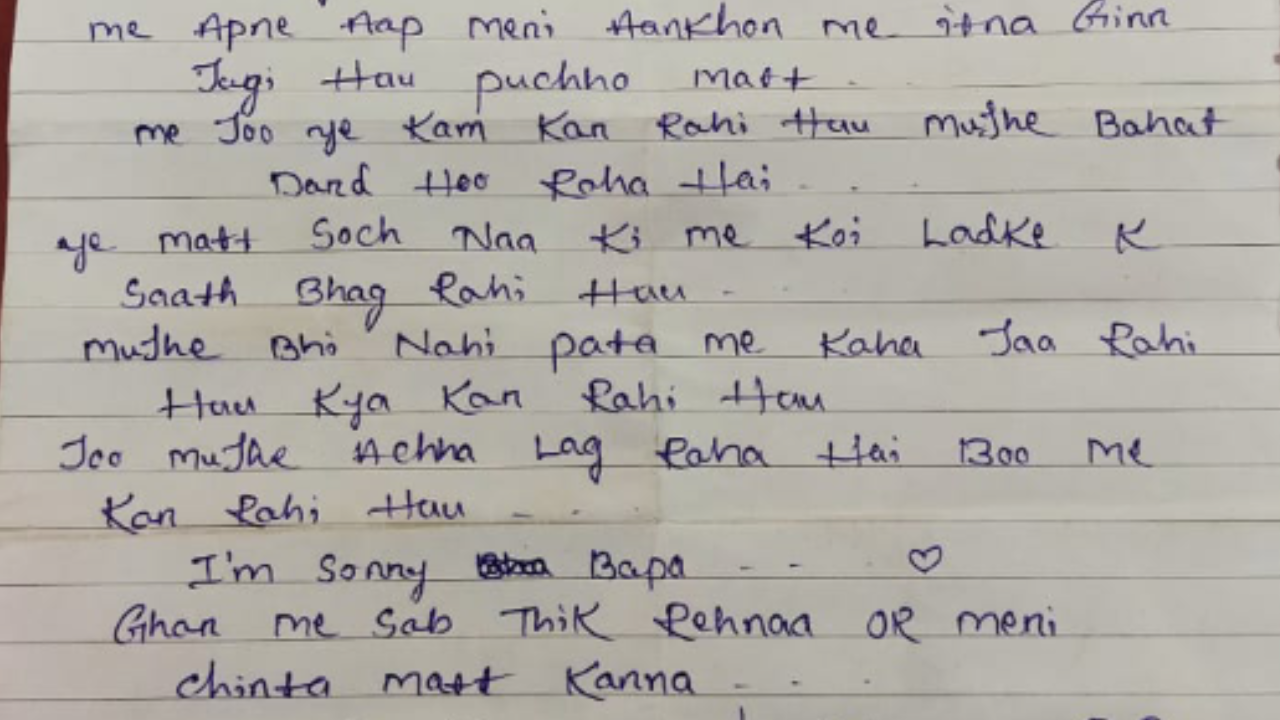 me Apne Aap meri Aankhon me itna Girr
Jugi Hau puchho matt .
me Joo ye Kam Kar Rahi Hau mujhe Bahat
Dard Hoo Raha Hai . . .
ye matt Soch Naa Ki me Koi Ladke K
Saath Bhag Rahi Hau - .
mujhe Bhi Nahi pata me Kaha Jaa Rahi
Hau Kya Kar Rahi Hau
Joo mujhe Achha Lag Raha Hai Boo me
Kar Rahi Hau - . .
I'm Sorry Bapa - - . ♡
Ghar me Sab Thik Rehnaa OR meri
chinta matt Karna - . .